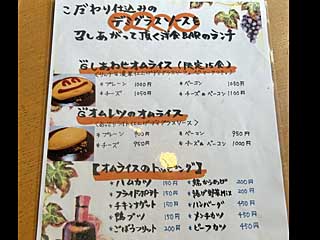 こだわり仕込みの
デミグラスソースを
召しあがって頂く洋食BARのランチ
しあわせオムライス(限定15食)
プレーン 1000円
チーズ 1050円
ベーコン 1050円
チーズ&ベーコン 1100円
オムレツのオムライス
プレーン 900円
チーズ 950円
ベーコン 950円
チーズ&ベーコン 1000円
【オムライスのトッピング】
ハムカツ 150円
フライドポテト 150円
チキンナゲット 150円
鴨ブツ 150円
ごぼうフリット 200円
鶏からあげ 200円
揚げ野菜MIX 200円
ハンバーグ 450円
メンチカツ 450円
ビーフカツ 450円